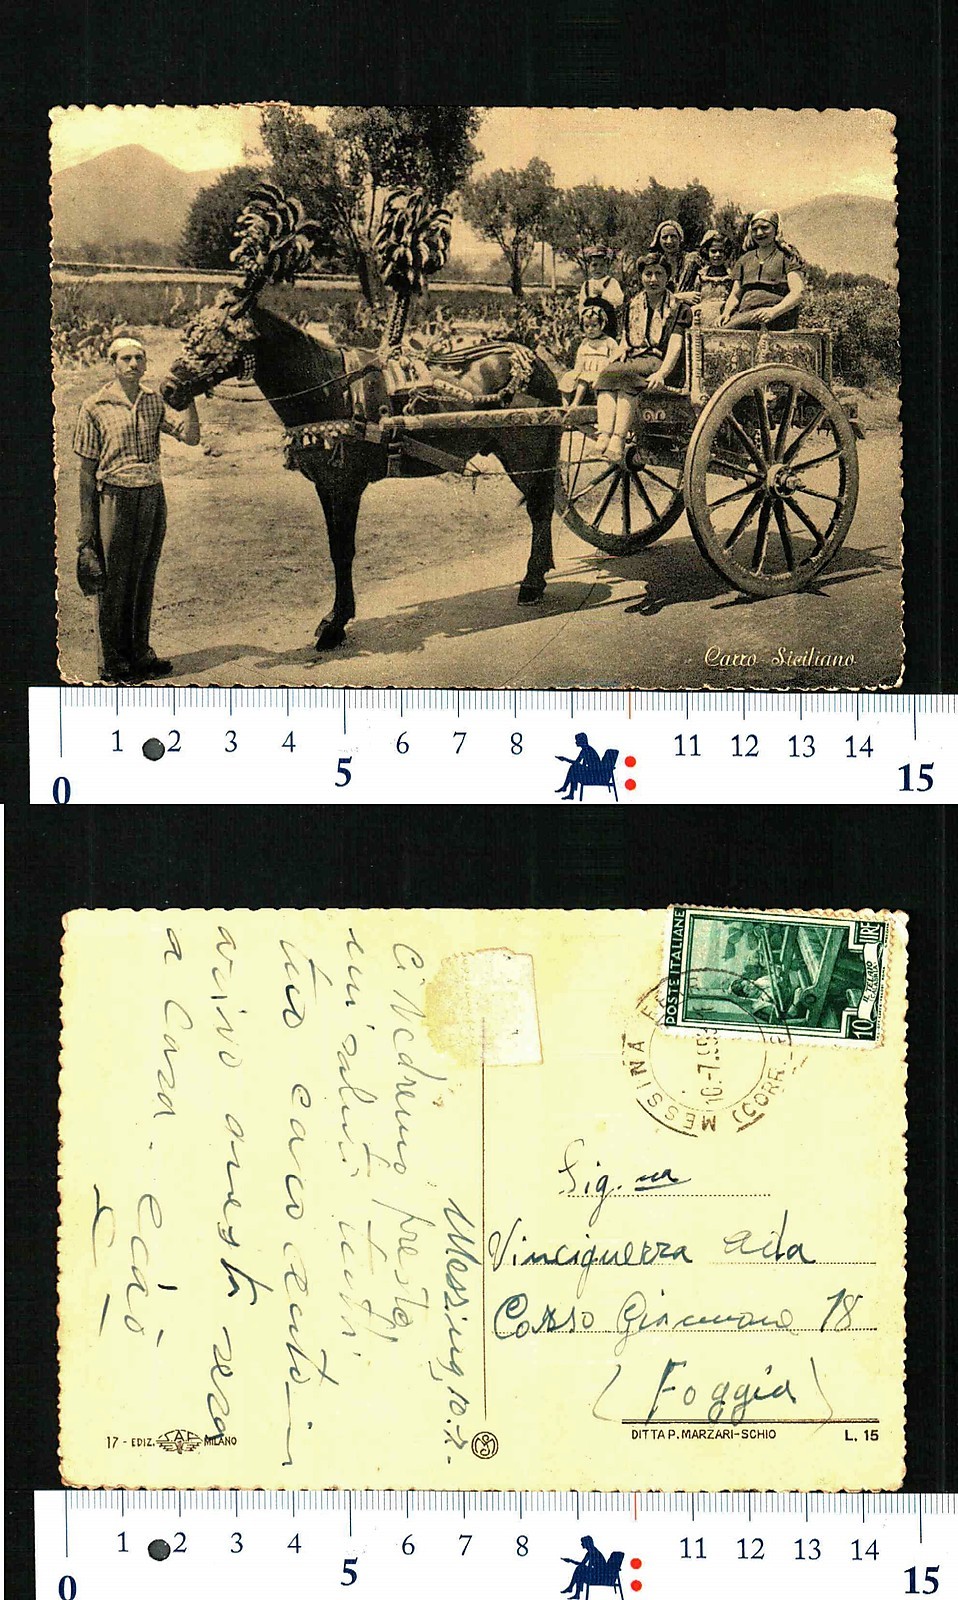 Carro Siciliano
1 2 3 4 6 7 8 11 12 13 14
0 5 15
POSTE ITALIANE
LIRE
10
MESSINA
(CORR.
10-7-195
Sig.na
Vinciguerra
Corso 18
(Foggia)
DITTA P. MARZARI-SCHIO
L. 15
17 - EDIZ. SAF MILANO
Messina, 10-7-
Ci vedremo presto,
saluti tutti
tuo caro
arrivo questa sera
a casa. Ciao
1 2 3 4 6 7 8 11 12 13 14
0 5 15